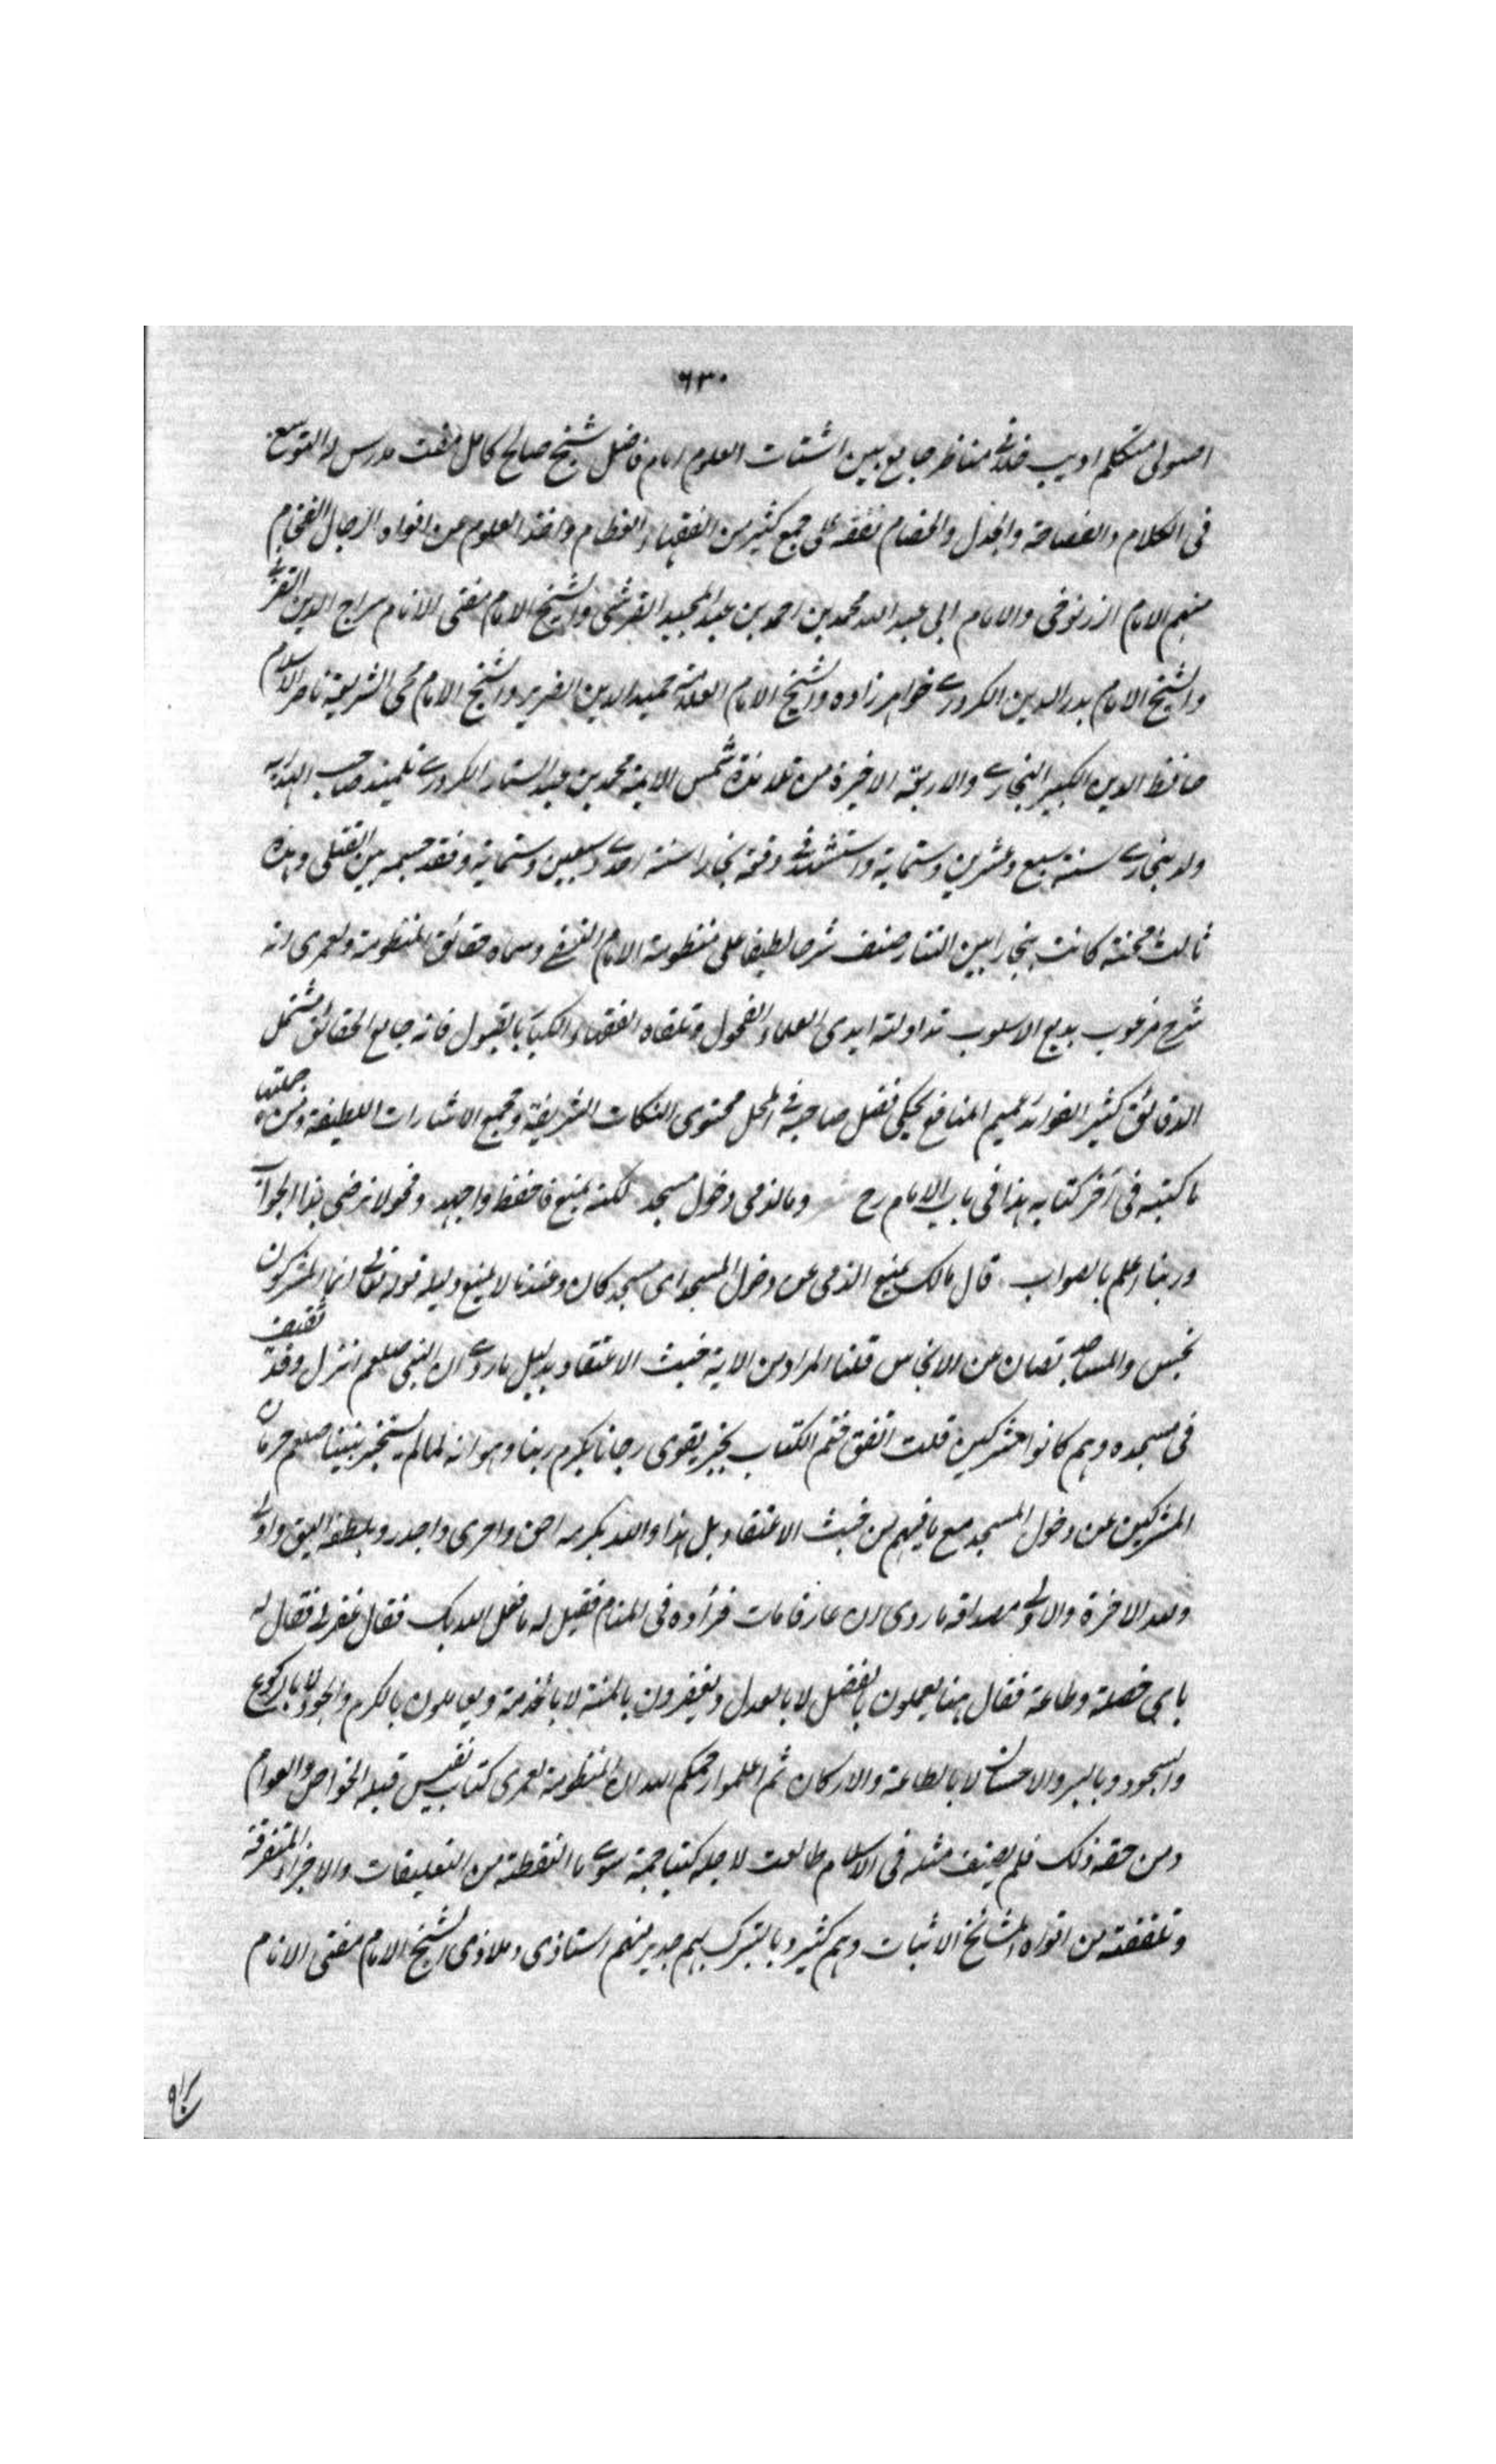 ٦٣٠
اصولى متكلم اديب خلافى مناظر جامع بين اشتات العلوم امام فاضل شيخ صالح كامل مفت مدرس له التوسع
فى الكلام والفصاحة والجدل والخصام تفقه على جمع كثير من الفقهاء العظام واخذ العلوم من افواه الرجال الفخام
منهم الامام الزرنوخى والامام ابى عبد الله محمد بن احمد بن عبد المجيد القرشى والشيخ الامام مفتى الانام سراج الدين القزنى
والشيخ الامام بدر الدين الكردرى خواهر زاده والشيخ الامام العلامة حميد الدين الضرير والشيخ الامام محى الشريعة ناصر الاسلام
حافظ الدين الكبير البخارى والاربعة الاخيرة من تلامذة شمس الايمة محمد بن عبد الستار الكردرى تلميذ صاحب الهداية
ولد ببخارى سنة سبع وعشرين وستماية واستشهد فى وقعة بخارا سنة احدى وسبعين وستماية وفقد جسمه بين القتلى وهذه
ثالث محنة كانت ببخارا بين التتار صنف شرحا لطيفا على منظومة الامام النسفى وسماه حقائق المنظومة ولعمرى انه
شرح مرغوب بديع الاسلوب تداولته ايدى العلماء الفحول وتلقاه الفقهاء الكبار بالقبول فانه جامع الحقائق مشتمل
الدقائق كثير الفوائد عميم المنافع يحكى فضل صاحبه فى المحل محتوى النكات الشريفة ومجمع الاشارات اللطيفة ومن جملتها
ما كتبه فى آخر كتابه هذا فى باب الامام رح وما لذمى دخول مسجد لكنه يمنع فاحفظ واجهد وفحولا نرضى بهذا الجواب
وربنا اعلم بالصواب قال مالك يمنع الذمى عن دخول المسجد اى مسجد كان وعندنا لا يمنع وليله قوله تعالى انما المشركون
نجس والمساجد تصان عن الانجاس قلنا المراد من الاية خبث الاعتقاد بدليل ما روى ان النبى صلعم انزل وفد ثقيف
فى مسجده وهم كانوا مشركين قلت اتفق ختم الكتاب بخير يقوى رجانا بكرم ربنا وهو انه لما لم يستخبر نبينا صلعم حرمان
المشركين عن دخول المسجد مع ما فيهم من خبث الاعتقاد بل هذا والله بكرمه احق واحرى واجدر وبلطفه اليق واولى
ولله الاخرة والاولى مصداقه ما روى ان عارفا مات فرآوه فى المنام فقيل له ما فعل الله بك فقال غفر لى فقال له
باى خصلة وطاعة فقال هنا يعملون بالفضل لا بالعدل ويغفرون بالمنة لا بالخدمة ويعاملون بالكرم والجود لا بالركوع
والسجود وبالبر والاحسان لا بالطاعة والاركان ثم اعلموا رحمكم الله ان المنظومة لعمرى كتاب نفيس قبله الخواص والعوام
ومن حقه ذلك فلم يصنف مثله فى الاسلام طالعت لاجله كتبا جمة سوى ما التقطة من التعليقات والاجزاء المتفرقة
وتلقفته من افواه المشائخ الاثبات وهم كثير وبالتبرك بهم جدير منهم استاذى وملاذى الشيخ الامام مفتى الانام